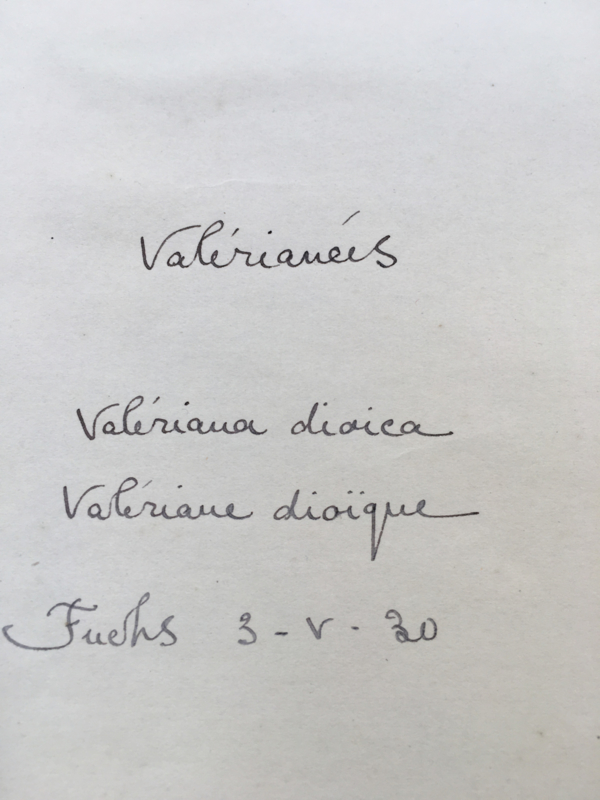 Valérianées
Valériana dioica
Valériane dioïque
Fuchs 3-V-30